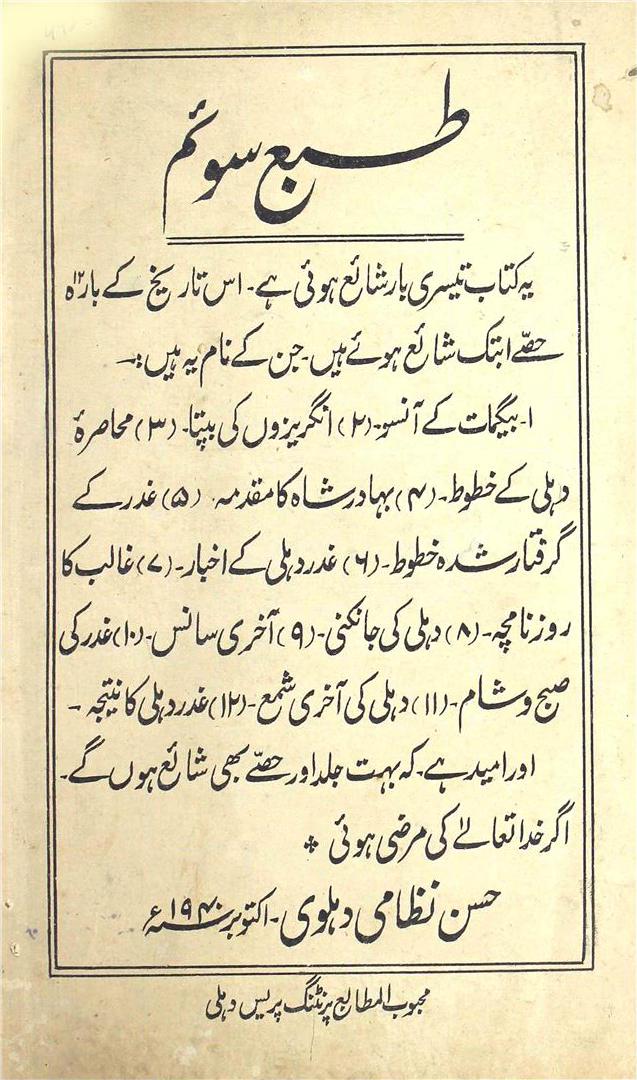 طبع سوئم
یہ کتاب تیسری بار شائع ہوئی ہے۔ اس تاریخ کے بارہ ۱۲
حصّے ابتک شائع ہوئے ہیں۔ جن کے نام یہ ہیں:۔
۱۔ بیگمات کے آنسو۔ (۲) انگریزوں کی بپتا۔ (۳) محاصرۂ
دہلی کے خطوط۔ (۴) بہادر شاہ کا مقدمہ۔ (۵) غدر کے
گرفتار شدہ خطوط۔ (۶) غدر دہلی کے اخبار۔ (۷) غالب کا
روزنامچہ۔ (۸) دہلی کی جانکنی۔ (۹) آخری سانس۔ (۱۰) غدر کی
صبح و شام۔ (۱۱) دہلی کی آخری شمع۔ (۱۲) غدر دہلی کا نتیجہ۔
اور امید ہے۔ کہ بہت جلد اور حصّے بھی شائع ہوں گے۔
اگر خدا تعالےٰ کی مرضی ہوئی ؞
حسن نظامی دہلوی۔ اکتوبر ۱۹۴۰ء
محبوب المطابع پرنٹنگ پریس دہلی